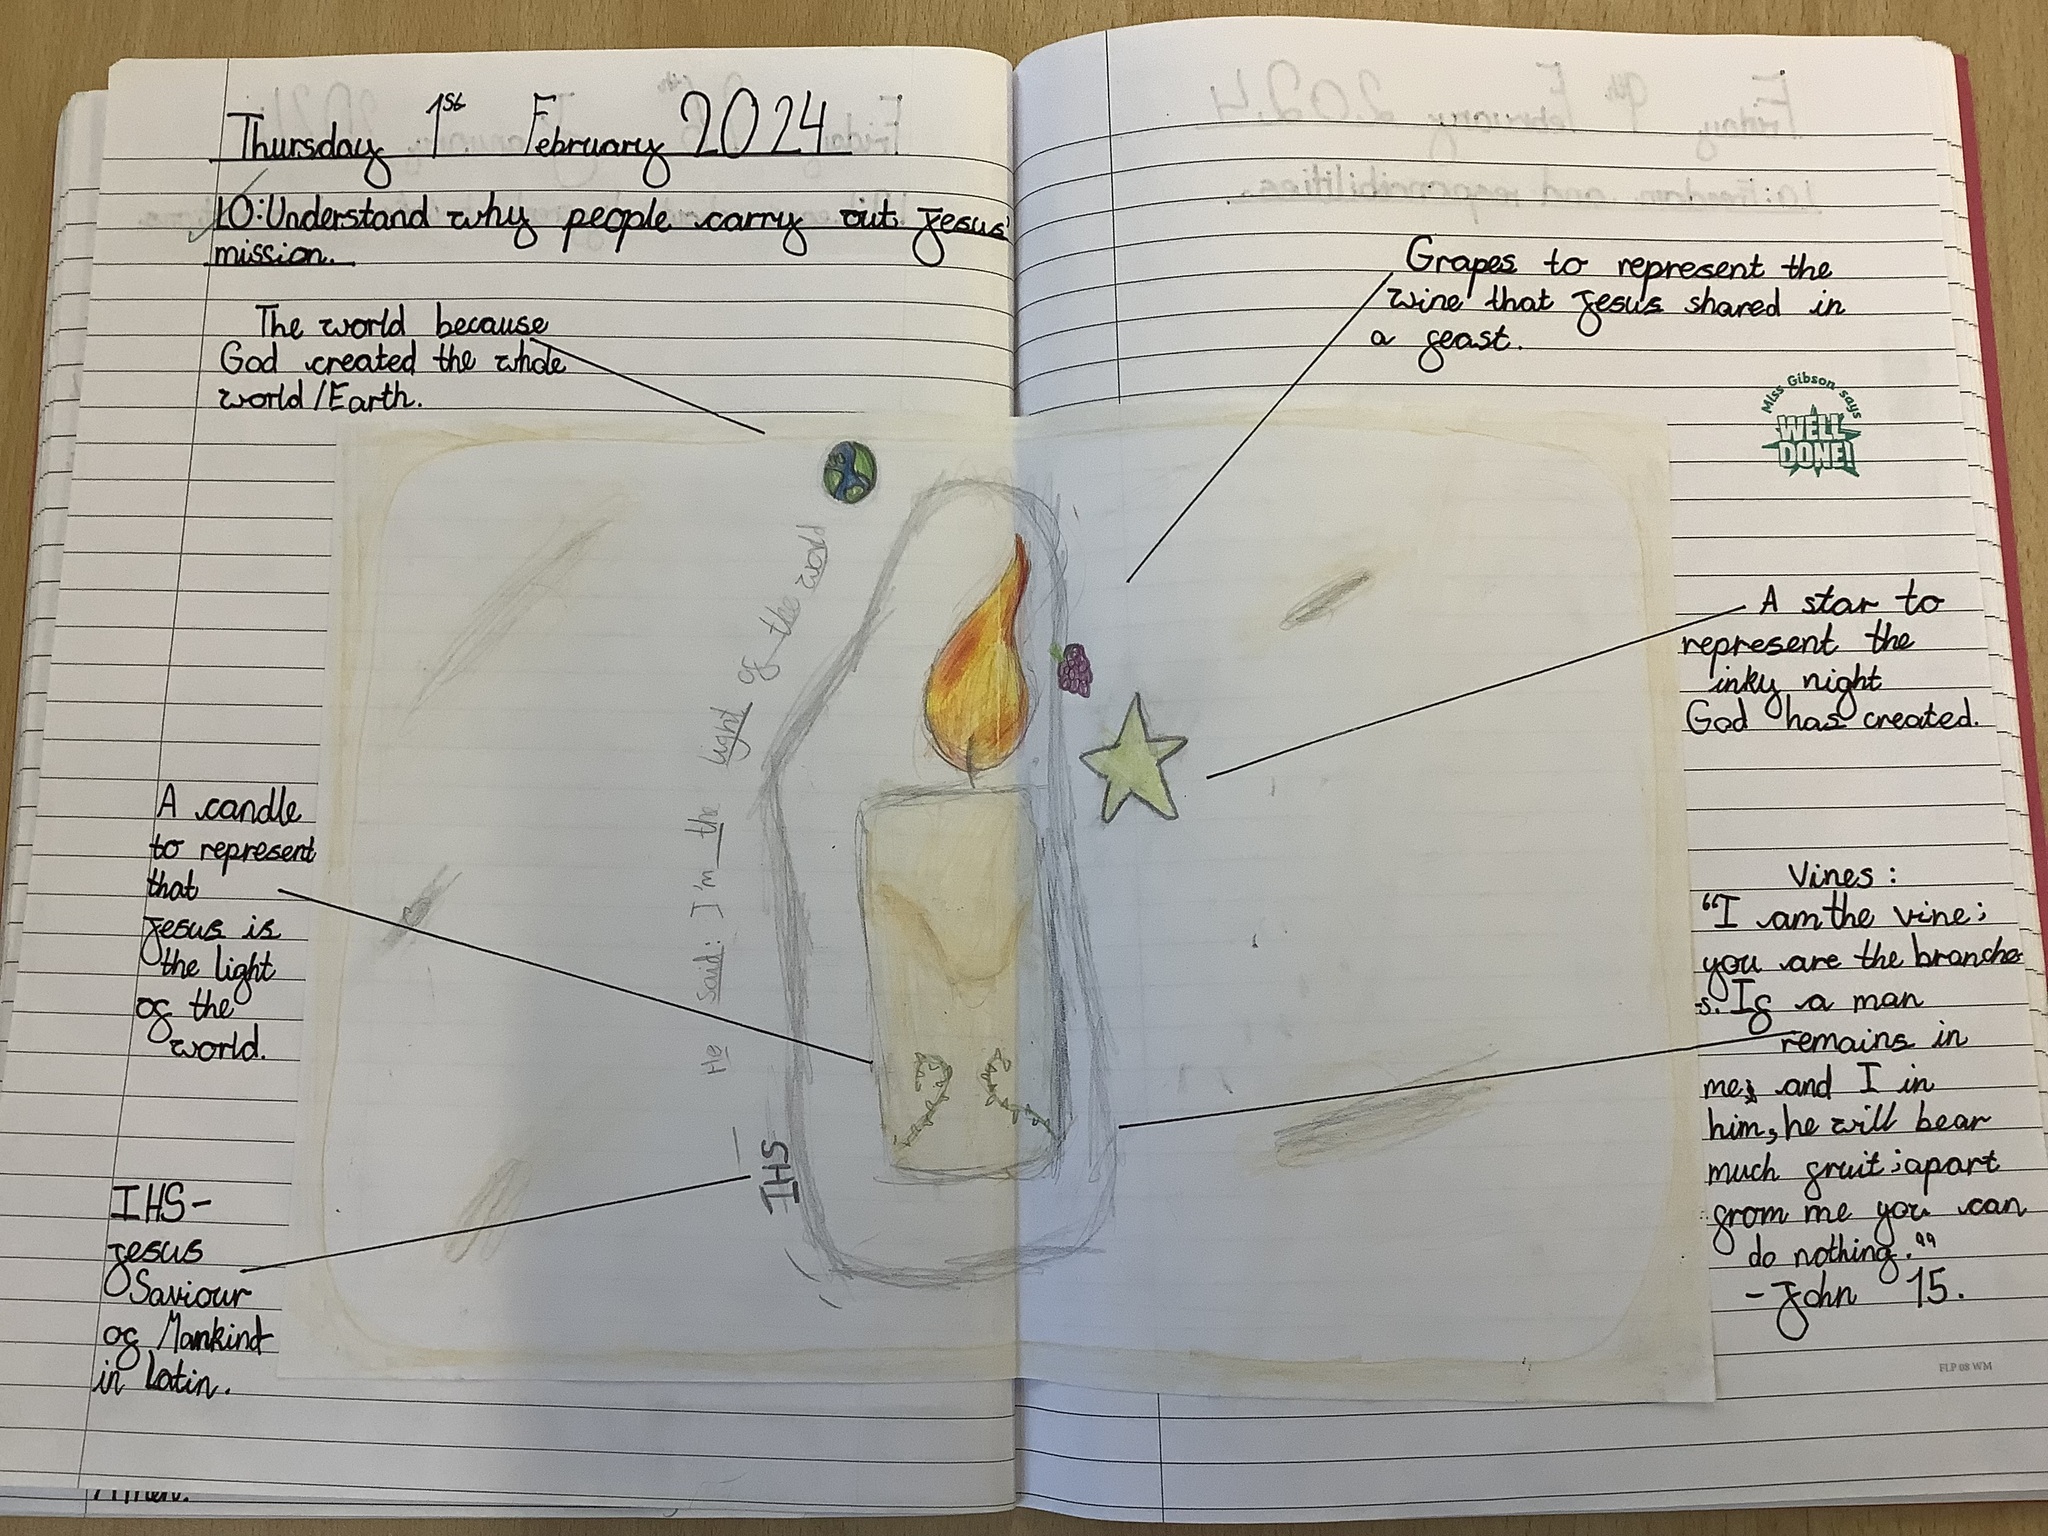 Thursday 1st February 2024
LO: Understand why people carry out Jesus'
mission.
The world because
God created the whole
world/Earth.
A candle
to represent
that
Jesus is
the light
of the
world.
IHS-
Jesus
Saviour
of Mankind
in Latin.
He said: I'm the light of the world
IHS
Grapes to represent the
wine that Jesus shared in
a feast.
Miss Gibson says
WELL
DONE!
A star to
represent the
inky night
God has created.
Vines:
"I am the vine;
you are the branche
-s. If a man
remains in
me, and I in
him, he will bear
much fruit; apart
from me you can
do nothing."
- John 15.
FLP 08 WM
Friday 9th February 2024